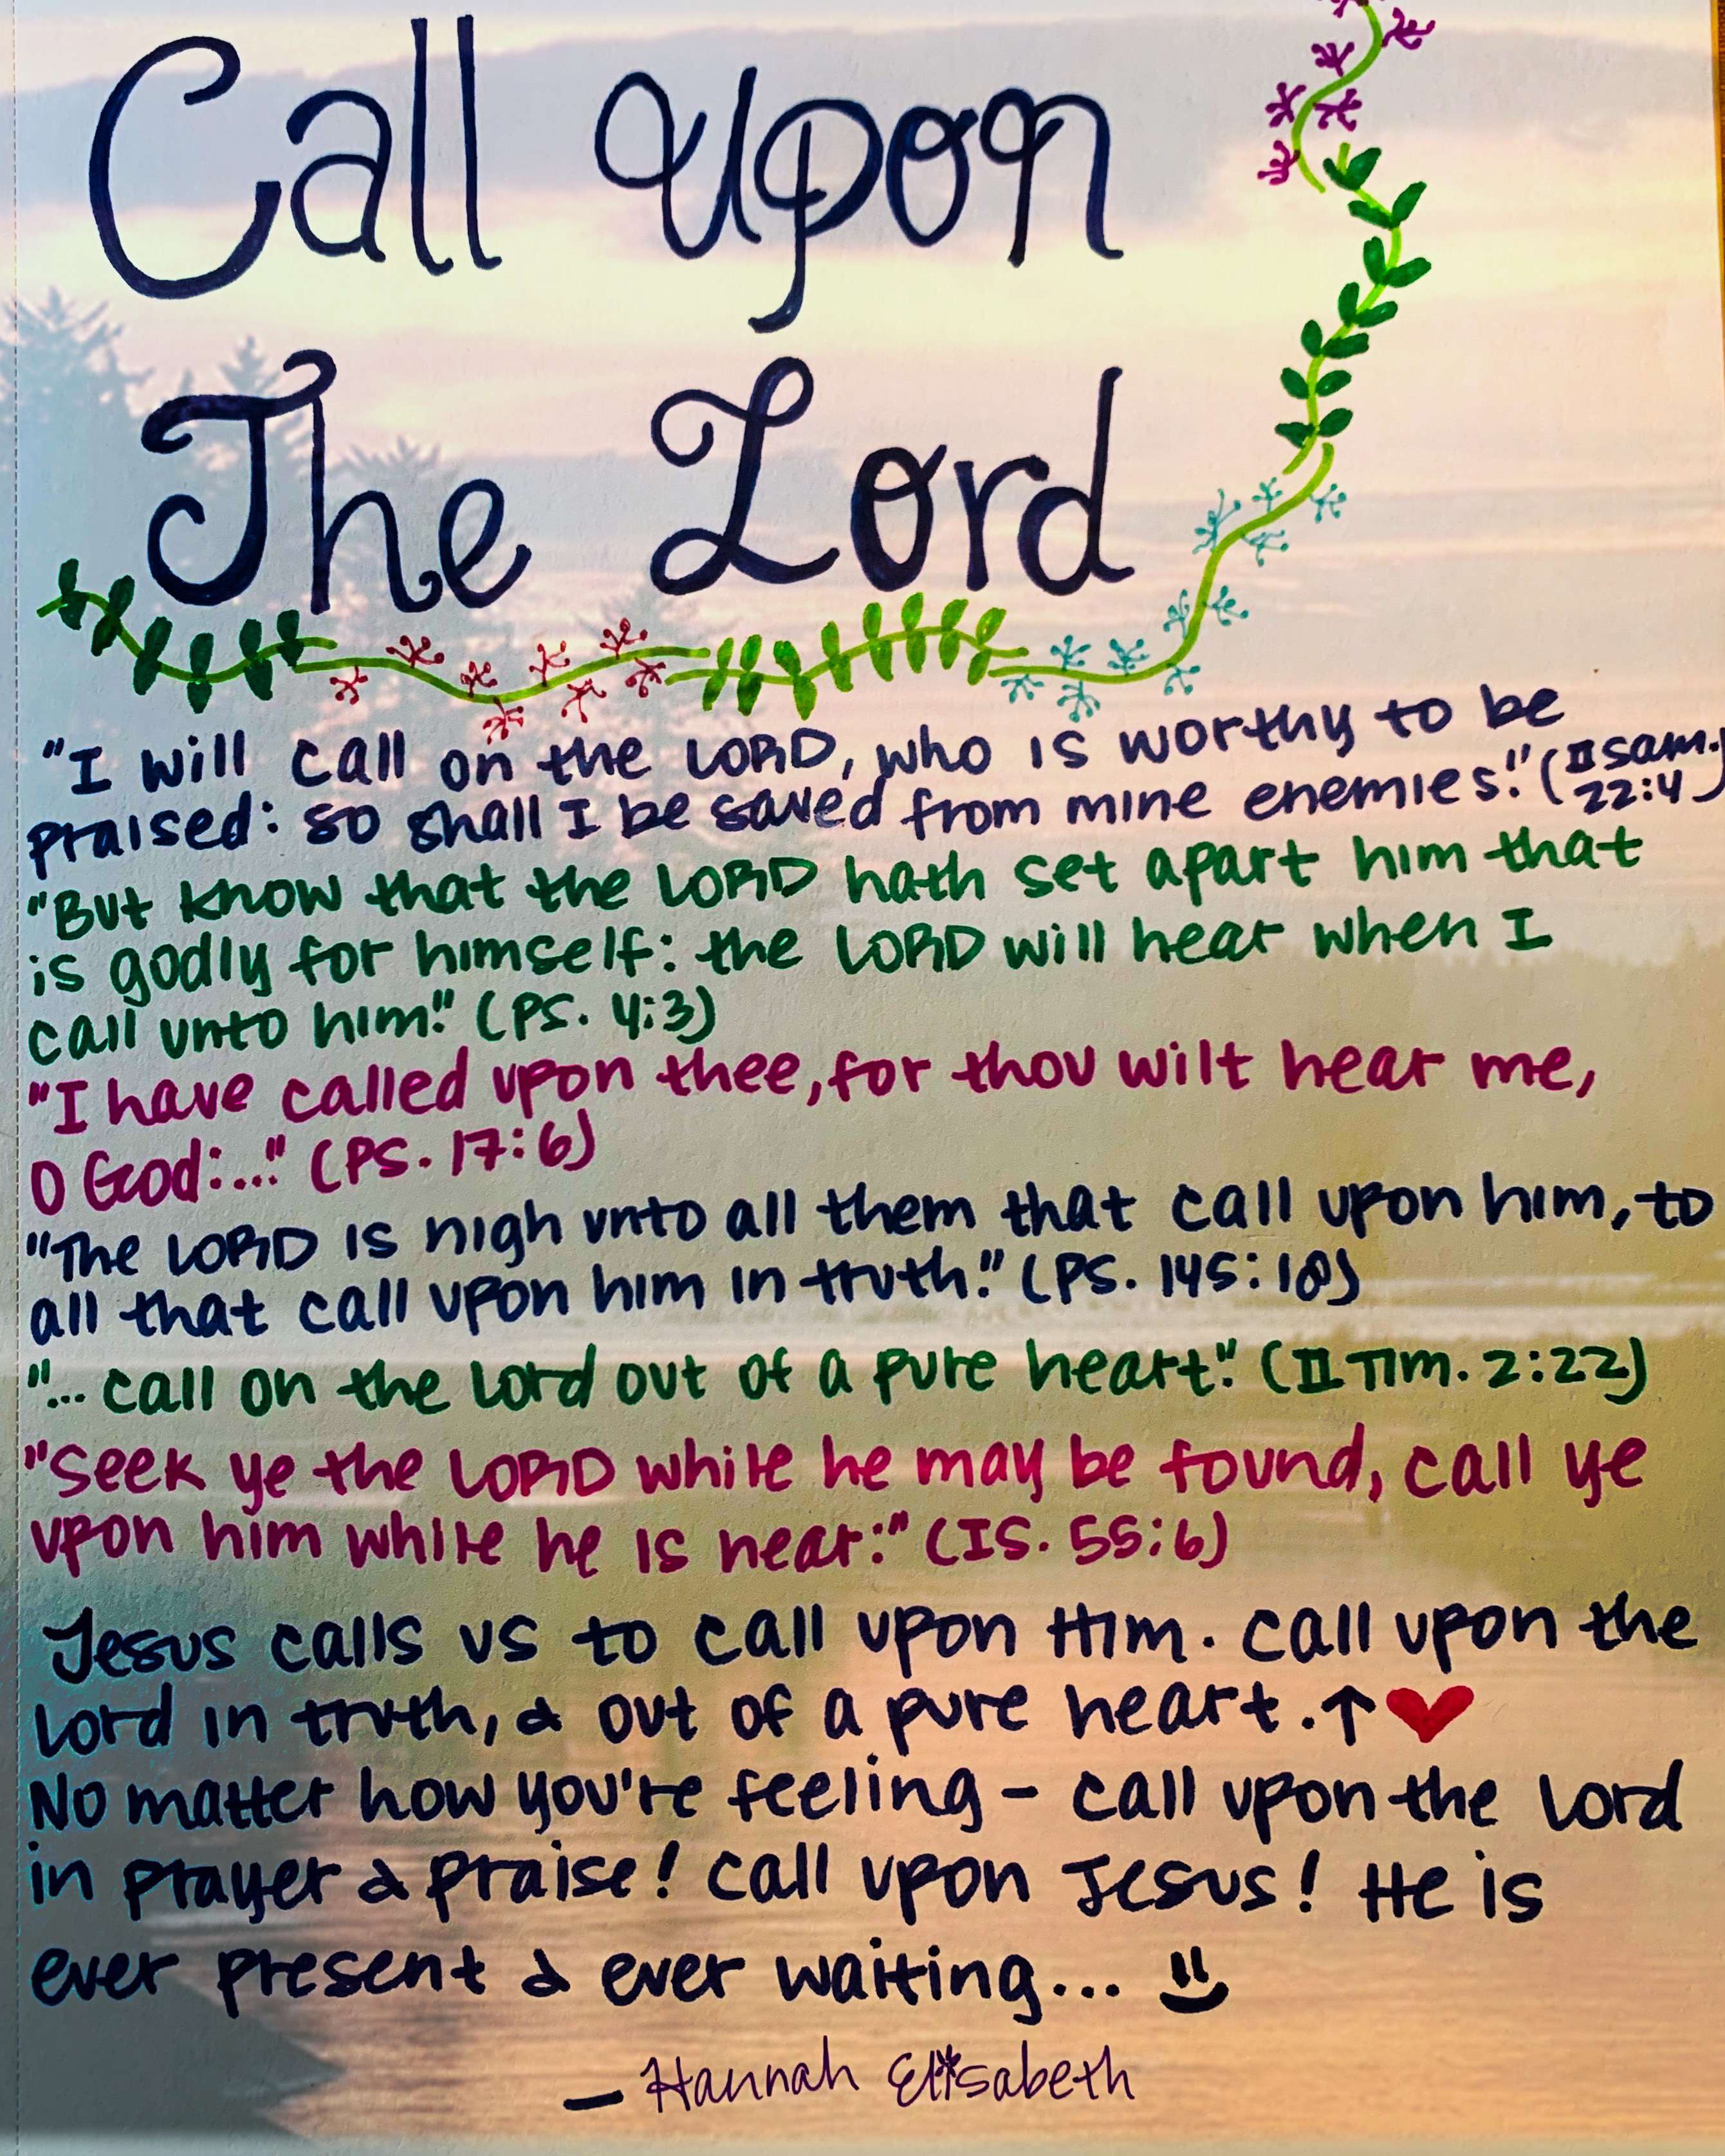 Call Upon
The Lord
"I will call on the LORD, who is worthy to be
praised: so shall I be saved from mine enemies." (II Sam. 22:4)
"But know that the LORD hath set apart him that
is godly for himself: the LORD will hear when I
call unto him." (PS. 4:3)
"I have called upon thee, for thou wilt hear me,
O God:..." (PS. 17:6)
"The LORD is nigh unto all them that call upon him, to
all that call upon him in truth." (PS. 145:18)
"... call on the Lord out of a pure heart." (II Tim. 2:22)
"Seek ye the LORD while he may be found, call ye
upon him while he is near:" (IS. 55:6)
Jesus calls us to call upon Him. Call upon the
Lord in truth, & out of a pure heart. ↑ ♥
No matter how you're feeling - call upon the Lord
in prayer & praise! Call upon Jesus! He is
ever present & ever waiting... :)
— Hannah Elisabeth